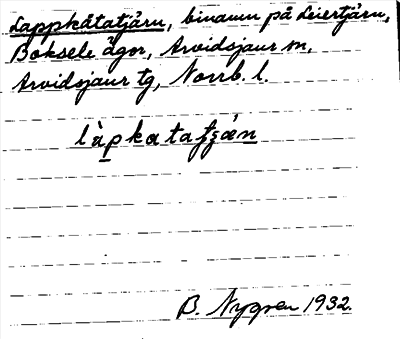 Lappkåtatjärn, binamn på Leiertjärn,
Boksele ägor, Arvidsjaur sn,
Arvidsjaur tg, Norrb. l.
B. Nygren 1932.